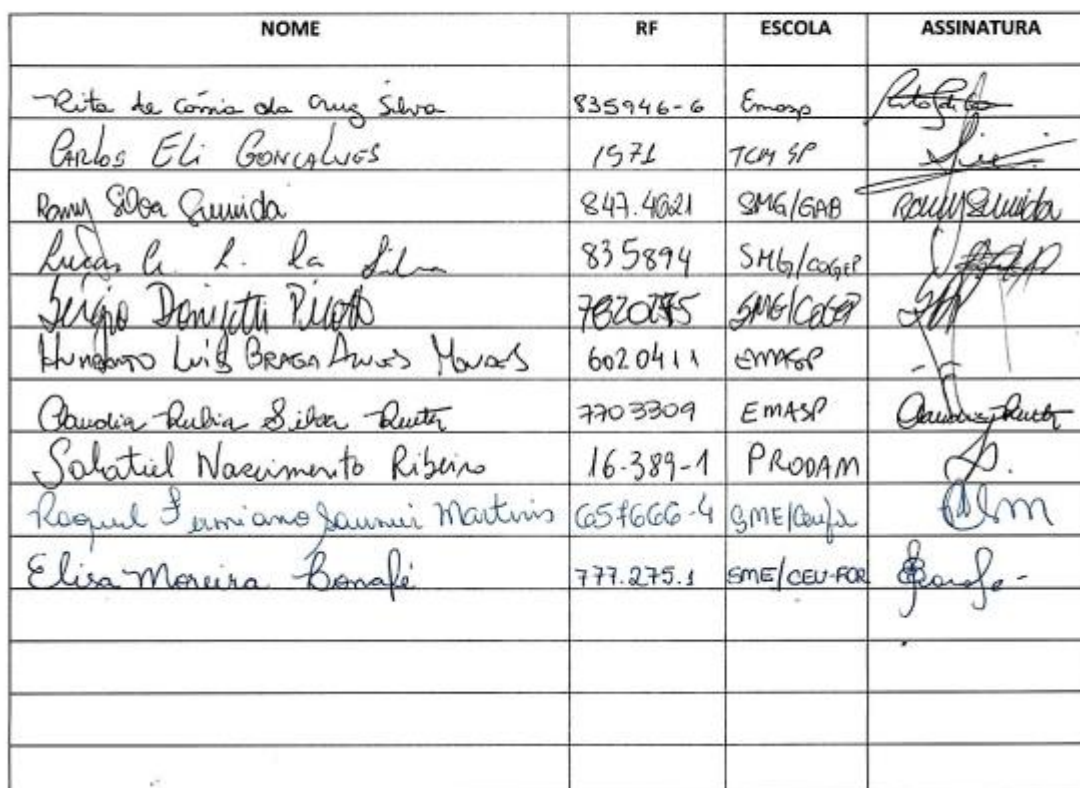 NOME RF ESCOLA ASSINATURA
Rita de Cássia da Cruz Silva 835946-6 Emasp
Carlos Eli Gonçalves 1571 TCM SP
Romy Silva Sumida 847.4021 SMG/GAB Romy Sumida
Lucas da Silva 835894 SMG/COGEP
Sérgio Donizetti 7820275 SMG/COGEP
Humberto Luis Braga Alves Moraes 6020411 EMASP
Claudia Rubia Silva 7703309 EMASP Claudia
Salatiel Nascimento Ribeiro 16-389-1 PRODAM
Raquel Martins 657666-4 SME/
Elisa Moreira Bonafé 777.275.1 SME/CEU-FOR